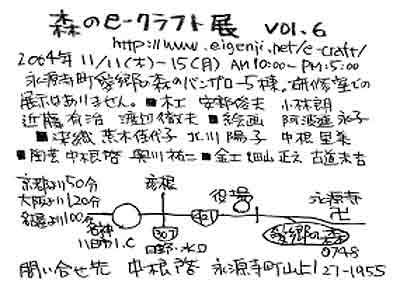 森のe-クラフト展 VOl.6
http://www.eigenji.net/e-craft/
2004年 11/11(木)~15(月) AM10:00~PM:5:00
永源寺町愛郷の森のバンガロー5棟。研修室での
展示はありません。■木工 安部俊夫 小林朗
近藤有治 渡辺徹夫 ■絵画 阿波連永子
■染織 荒木佳代子 北川陽子 中根里美
■陶芸 中根啓 奥川祐二 ■金工 畑山正之 古道末吉
京都より50分 彦根 役場 永源寺
大阪より120分
名古屋より100分 421 卍
名神 307 愛郷の森
八日市I.C 日野・水口 0748
問い合せ先 中根啓 永源寺町山上 27-1955